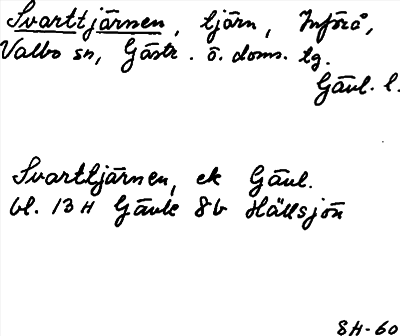 Svarttjärnen, tjärn, Införå,
Valbo sn, Gästr. ö. doms. tg.
Gävl. l.
Svarttjärnen, ek Gävl.
bl. 13 H Gävle 8b Hällsjön
8H-60